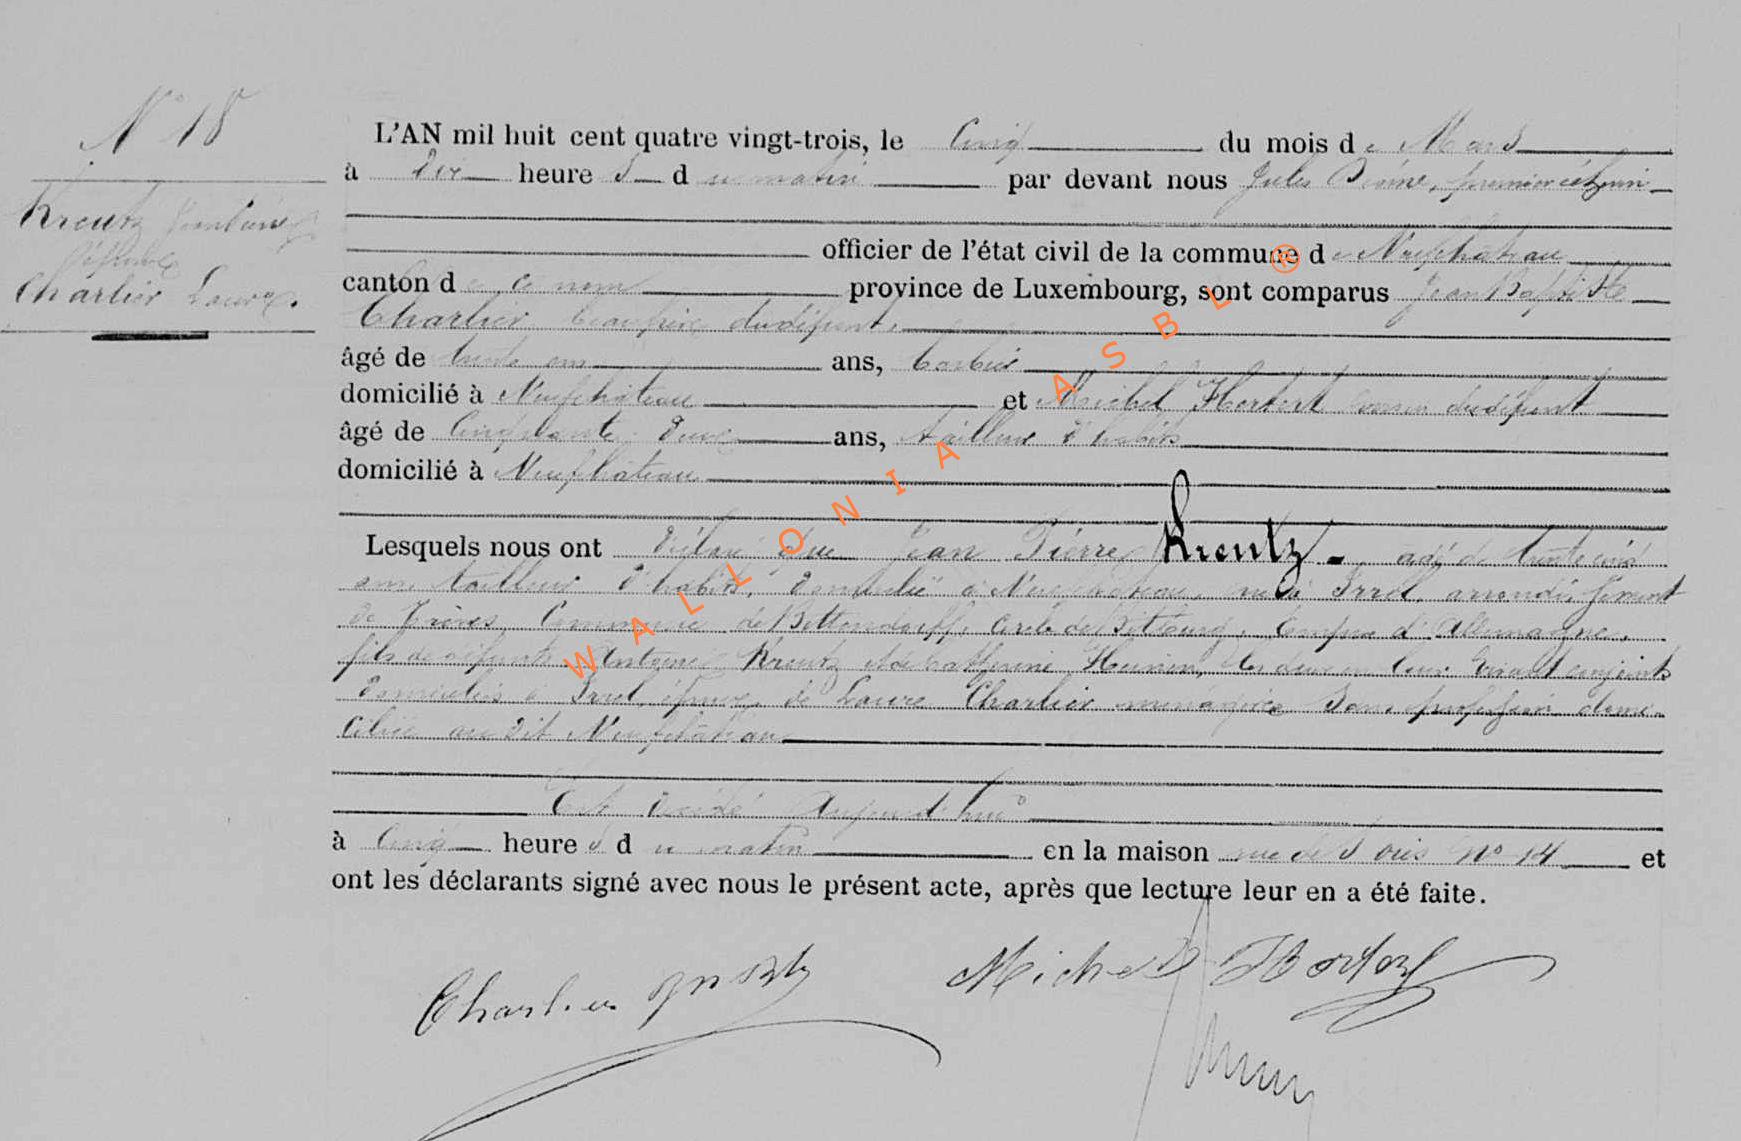 N° 18
Kreutz Jean Pierre
Charlier Laure.
L'AN mil huit cent quatre vingt-trois, le Cinq du mois de Mars
à Dix heures du matin par devant nous Jules premier échevin
officier de l'état civil de la commune de Neufchâteau
canton de ce nom province de Luxembourg, sont comparus Jean Baptiste
Charlier beau frère du défunt,
âgé de trente ans, barbier
domicilié à Neufchâteau et Michel Herbert cousin du défunt
âgé de Cinquante Deux ans, tailleur d'habits
domicilié à Neufchâteau
Lesquels nous ont déclaré que Jean Pierre Kreutz - agé de trente cinq
ans, tailleur d'habits, domicilié à Neufchâteau, né à Irrel, arrondissement
de Trèves, Commune de Bettendorff, Cercle de Bitbourg, Empire d'Allemagne,
fils de défunts Antoine Kreutz et de Catherine les deux en leur vivant conjoints
domiciliés à Irrel, époux de Laure Charlier ménagère sans profession domi-
ciliée au dit Neufchâteau
Est décédé Aujourd'hui
à Cinq heures du matin en la maison rue N° 14 et
ont les déclarants signé avec nous le présent acte, après que lecture leur en a été faite.
Charlier Michel
WALLONIA ASBL ®